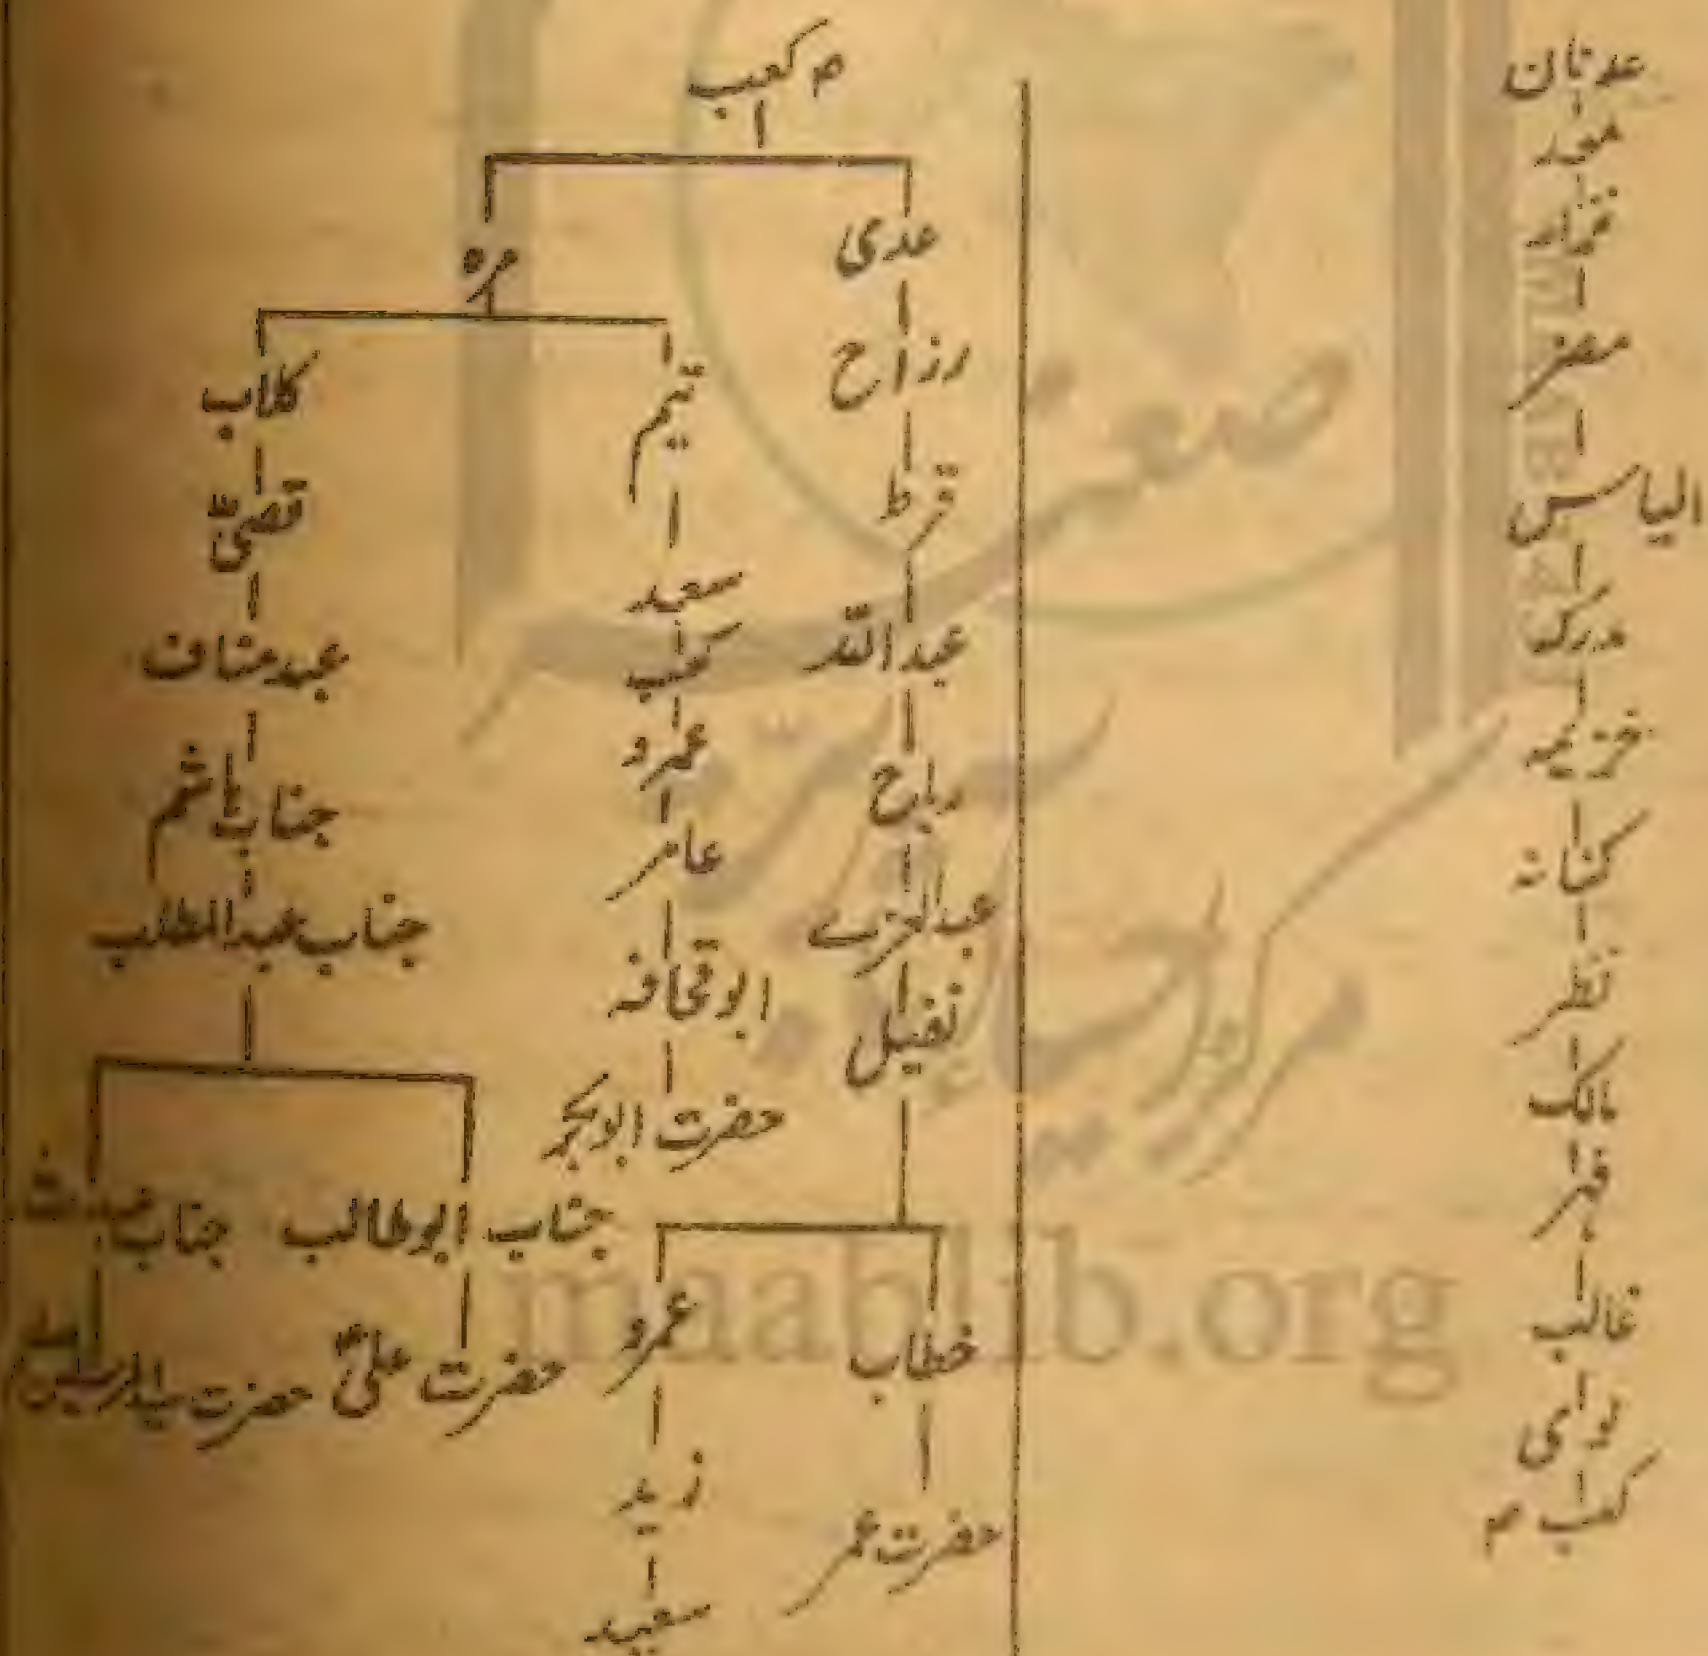 عدنان
معد
نزار
مضر
الیاس
مدرکہ
خزیمہ
کنانہ
نظر
مالک
فہر
غالب
لوای
کعب ۴
۴ کعب
عدی
مرہ
رزاح
قرط
عبداللہ
رباح
عبدالعزے
نفیل
خطاب
حضرت عمر
عمرو
زید
سعید
تیم
سعید
کعب
عمرو
عامر
ابو قحافہ
حضرت ابوبکر
کلاب
قصیّ
عبد مناف
جناب ہاشم
جناب عبدالمطلب
جناب ابوطالب
حضرت علیؑ
جناب
حضرت سیدالمرسلین
صفی
مرکز احیاء
maablib.org